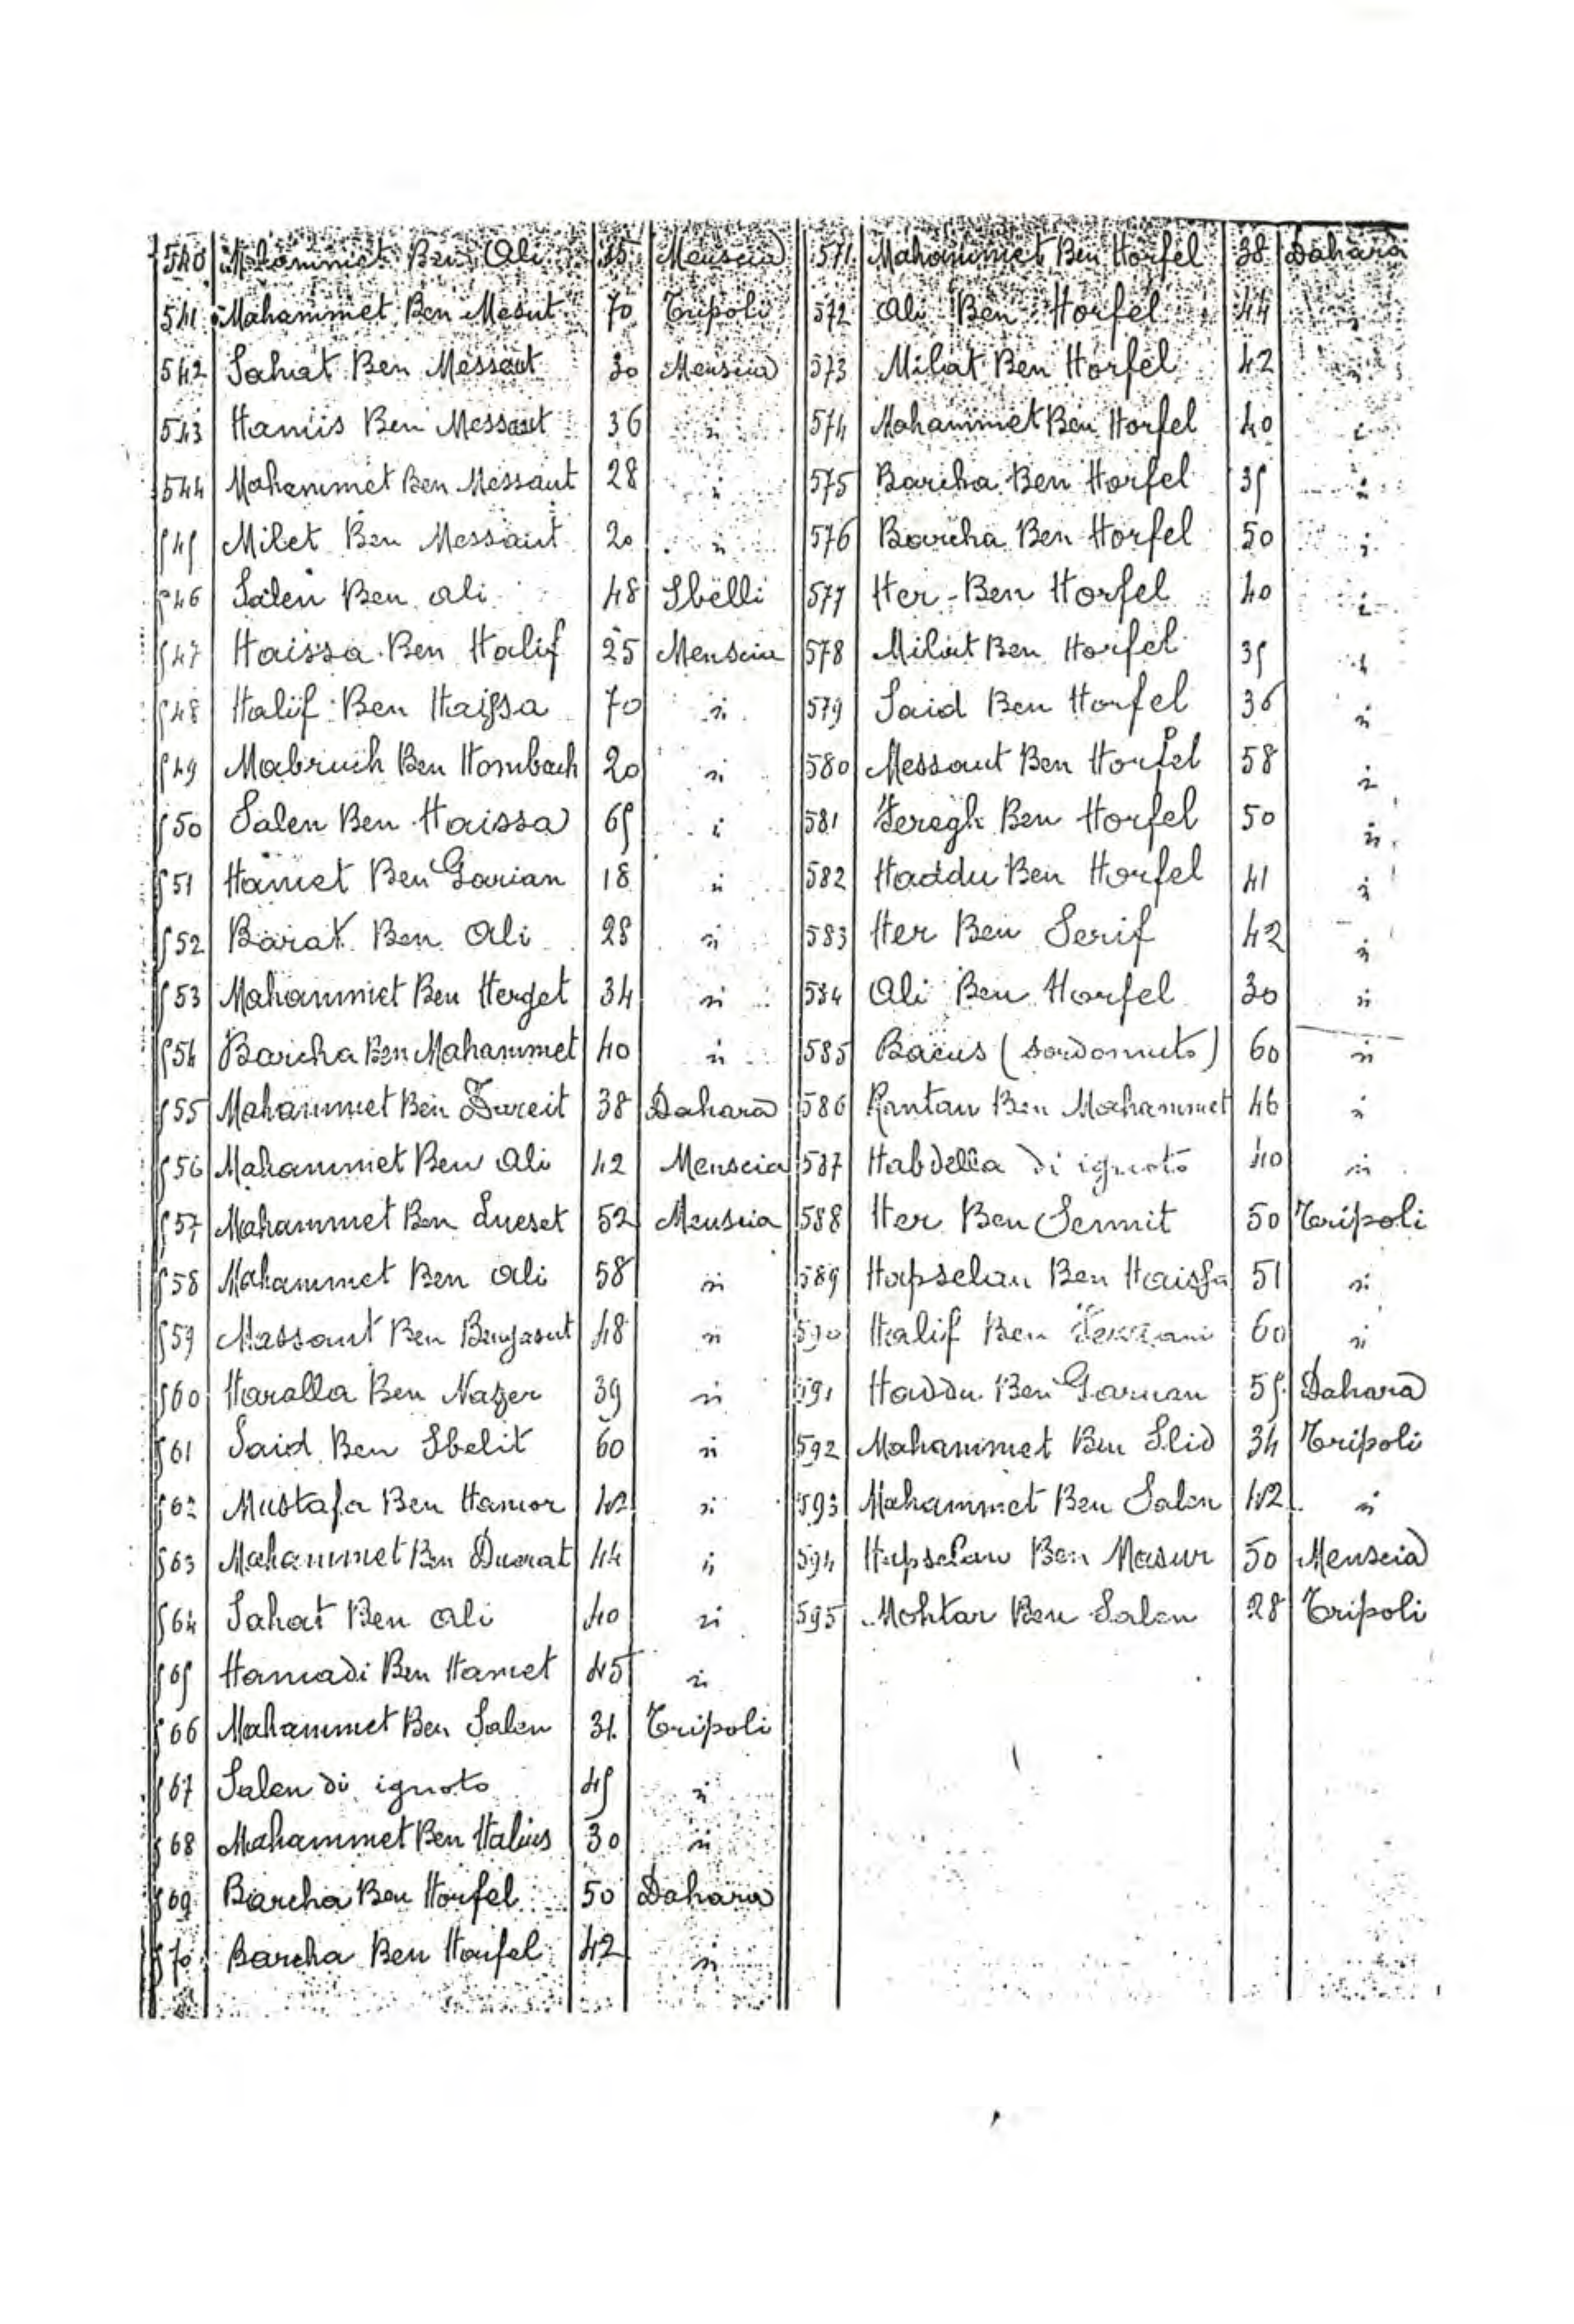 540 Mahammet Ben Ali 35 Menscia
541 Mahammet Ben Mesut 70 Tripoli
542 Sahat Ben Messaut 30 Menscia
543 Hamis Ben Messaut 36 "
544 Mahammet Ben Messaut 28 "
545 Milet Ben Messaut 20 "
546 Salen Ben Ali 48 Sbelli
547 Haissa Ben Halif 25 Menscia
548 Halif Ben Haissa 70 "
549 Mabruch Ben Hombach 20 "
550 Salen Ben Haissa 65 "
551 Hamet Ben Garian 18 "
552 Barat Ben Ali 28 "
553 Mahammet Ben Herget 34 "
554 Barcha Ben Mahammet 40 "
555 Mahammet Ben Dureit 38 Dahara
556 Mahammet Ben Ali 42 Menscia
557 Mahammet Ben Sueset 52 Menscia
558 Mahammet Ben Ali 58 "
559 Massaut Ben 48 "
560 Haralla Ben Nazer 39 "
561 Said Ben Sbelit 60 "
562 Mustafa Ben Hamor 42 "
563 Mahammet Ben Duerat 44 "
564 Sahat Ben Ali 40 "
565 Hamadi Ben Hamet 45 "
566 Mahammet Ben Salen 31 Tripoli
567 Salen di ignoto 45 "
568 Mahammet Ben 30 "
569 Barcha Ben Horfel 50 Dahara
570 Barcha Ben Horfel 42 "
571 Mahammet Ben Horfel 38 Dahara
572 Ali Ben Horfel 44 "
573 Milat Ben Horfel 42 "
574 Mahammet Ben Horfel 40 "
575 Barcha Ben Horfel 35 "
576 Barcha Ben Horfel 50 "
577 Her - Ben Horfel 40 "
578 Milat Ben Horfel 35 "
579 Said Ben Horfel 36 "
580 Messaut Ben Horfel 58 "
581 Feregh Ben Horfel 50 "
582 Haddu Ben Horfel 41 "
583 Her Ben Serif 42 "
584 Ali Ben Horfel 30 "
585 Bacus (sordomuto) 60 "
586 Rantan Ben Mahammet 46 "
587 Habdella di ignoto 40 "
588 Her Ben Semmit 50 Tripoli
589 Hapselan Ben Haissa 51 "
590 Halif Ben 60 "
591 Haddu Ben Garian 55 Dahara
592 Mahammet Ben Slid 34 Tripoli
593 Mahammet Ben Salen 42 "
594 Hapselan Ben Masur 50 Menscia
595 Mohtar Ben Salen 28 Tripoli